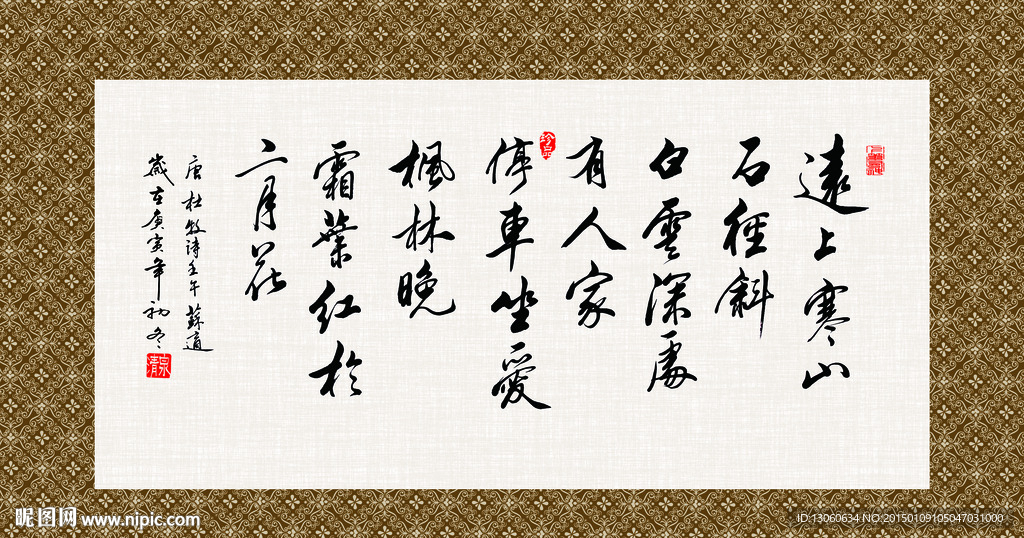 遠上寒山
石徑斜
白雲深處
有人家
停車坐愛
楓林晚
霜葉紅於
二月花
唐杜牧诗壬午蘇道
歲在庚寅年初冬
珍品
昵图网 www.nipic.com
ID:13060634 NO:20150109105047031000